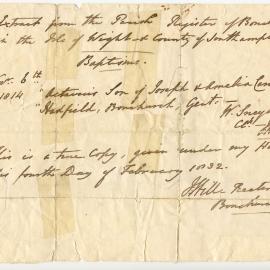 Extract from the Parish Register of Bonc
in the Isle of Wight & County of Southamp
Baptisms.
Nov. 6th
1814
Octavius Son of Joseph & Amelia Caro
Hadfield, Bonchurch, Gent.
This is a true Copy, given under my Ha
this fourth Day of February 1832.
Rector
Bonchurch